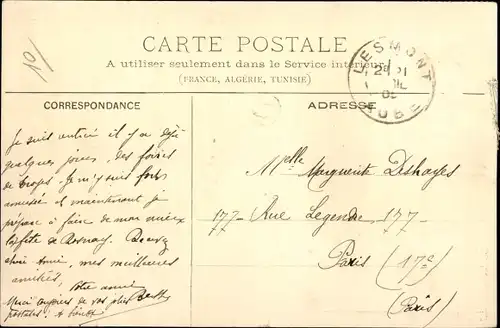 CARTE POSTALE
A utiliser seulement dans le Service intérieur
(FRANCE, ALGÉRIE, TUNISIE)
LESMONT
AUBE
10
CORRESPONDANCE
Je suis il y a déjà
quelques jours, des foires
de Je m'y suis fort
amusée et maintenant je
prépare à faire de mon mieux
la fête de Rosnay.
chère amie, mes meilleures
amitiés, Votre amie
de vos plus
postales!
ADRESSE
Melle Marguerite Deshayes
177 - Rue Legendre 177 -
Paris (17e)
(Paris)